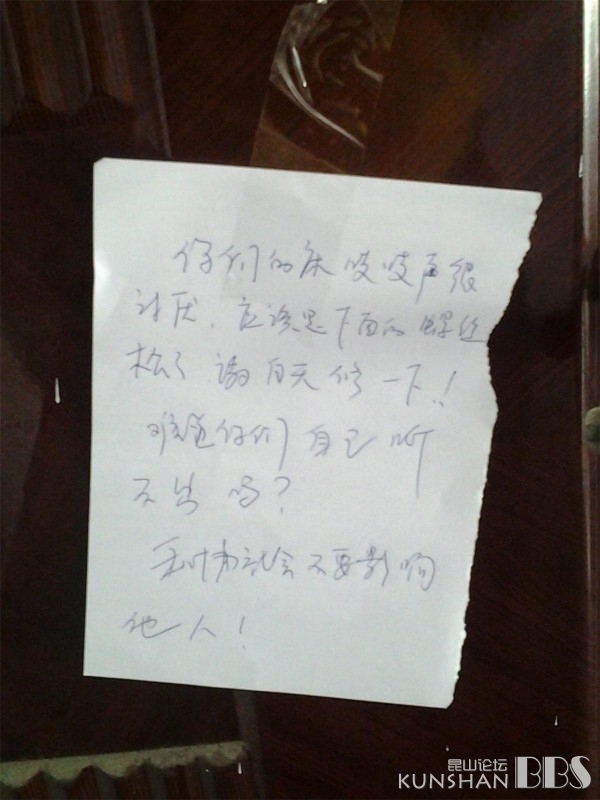 你们的床吱吱声很
讨厌，应该是下面的螺丝
松了 请白天修一下！
难道你们自己听
不出吗？
社会不要影响
他人！
昆山论坛
KUNSHAN BBS